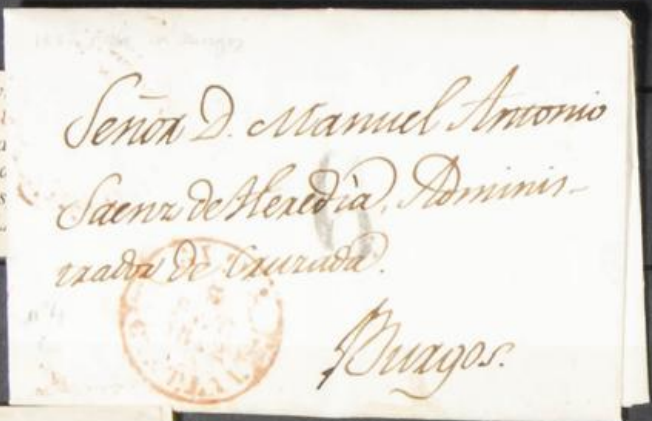 Señor D. Manuel Antonio
Saenz de Heredia, Adminis-
trador de Cruzada.
Burgos.
6